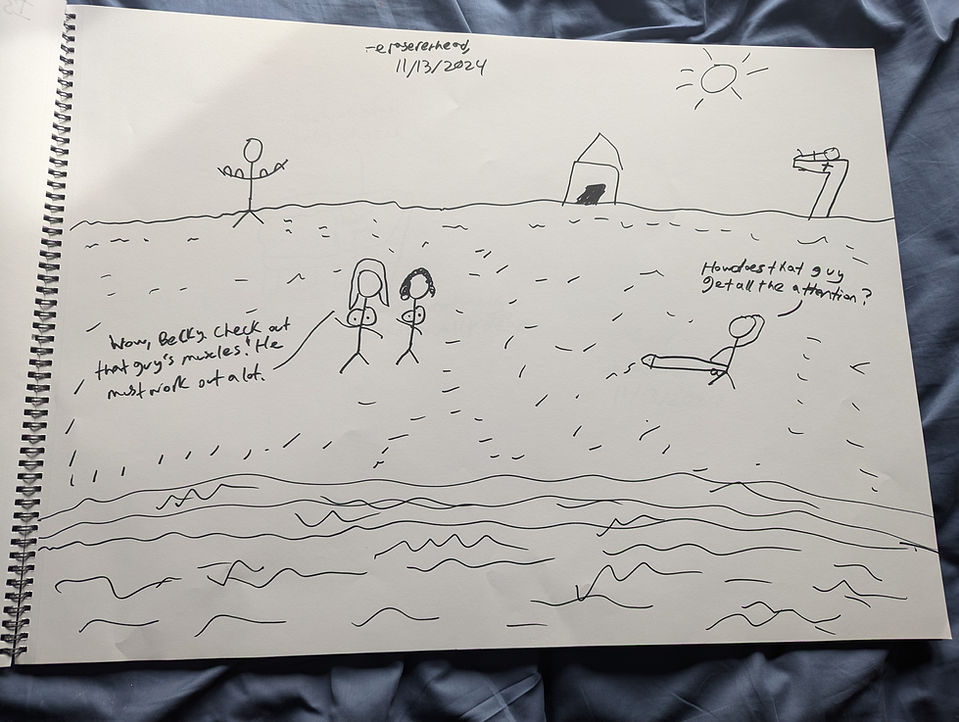 -erasererhead,
11/13/2024
How does that guy
get all the attention?
Wow, Becky. Check out
that guy's muscles! He
must work out a lot.